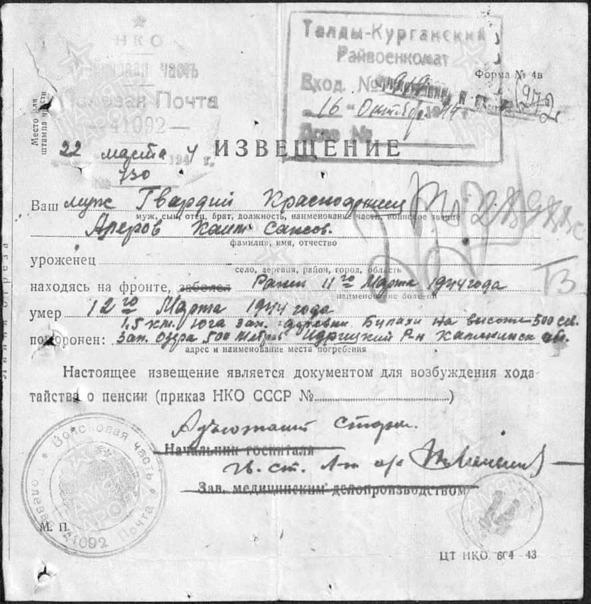 НКО
Войсковая часть
Полевая Почта
41092
Место для штампа части
Талды-Курганский
Райвоенкомат
Вход. №
16 " Октябр
Дело №
Форма № 4в
22 марта 1944 г.
№ 130
ИЗВЕЩЕНИЕ
Ваш муж Гвардии Красноармеец
муж, сын, отец, брат, должность, наименование части, воинское звание
Саисов
фамилия, имя, отчество
уроженец
село, деревня, район, город, область
находясь на фронте, заболел Ранен 11го Марта 1944 года
наименование болезни
умер 12го Марта 1944 года
1,5 км. юго зап. деревни на высоте 500 сев.
похоронен: Зап. Озера 500 метров Идрицкий Р-н Калининск обл.
адрес и наименование места погребения
Настоящее извещение является документом для возбуждения хода
тайства о пенсии (приказ НКО СССР № )
Адъютант Старш.
Начальник госпиталя
Гв. ст. л-т
Зав. медицинским делопроизводством
Войсковая часть
Полевая Почта
41092
М. П.
ТЗ
ЦТ НКО 604—43